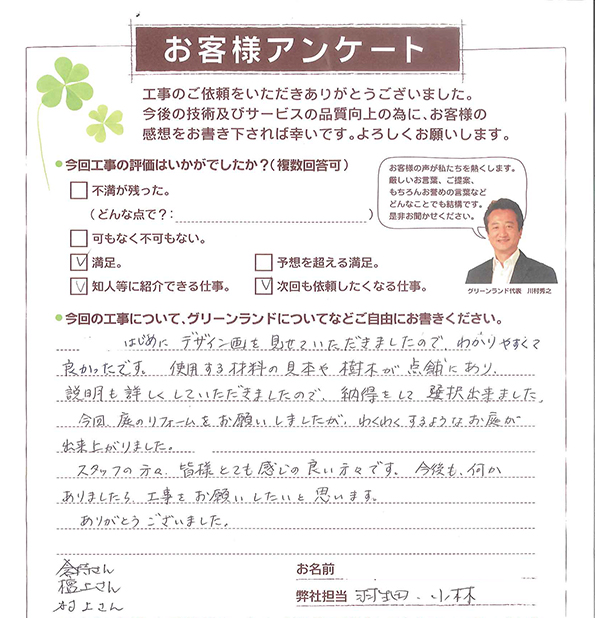 お客様アンケート
工事のご依頼をいただきありがとうございました。
今後の技術及びサービスの品質向上の為に、お客様の
感想をお書き下されば幸いです。よろしくお願いします。
今回工事の評価はいかがでしたか?(複数回答可)
不満が残った。
(どんな点で?: )
可もなく不可もない。
満足。
予想を超える満足。
知人等に紹介できる仕事。
次回も依頼したくなる仕事。
お客様の声が私たちを熱くします。
厳しいお言葉、ご提案、
もちろんお誉めの言葉など
どんなことでも結構です。
是非お聞かせください。
グリーンランド代表 川村秀之
今回の工事について、グリーンランドについてなどご自由にお書きください。
はじめに デザイン画を見せていただきましたので、わかりやすくて
良かったです。 使用する材料の見本や樹木が店舗にあり、
説明も詳しくしていただきましたので、納得をして選択出来ました。
今回、庭のリフォームをお願いしましたが、わくわくするようなお庭が
出来上がりました。
スタッフの方々、皆様とても感じの良い方々です。今後も、何か
ありましたら、工事をお願いしたいと思います。
ありがとうございました。
さん
さん
村上さん
お名前
弊社担当 羽畑・小林